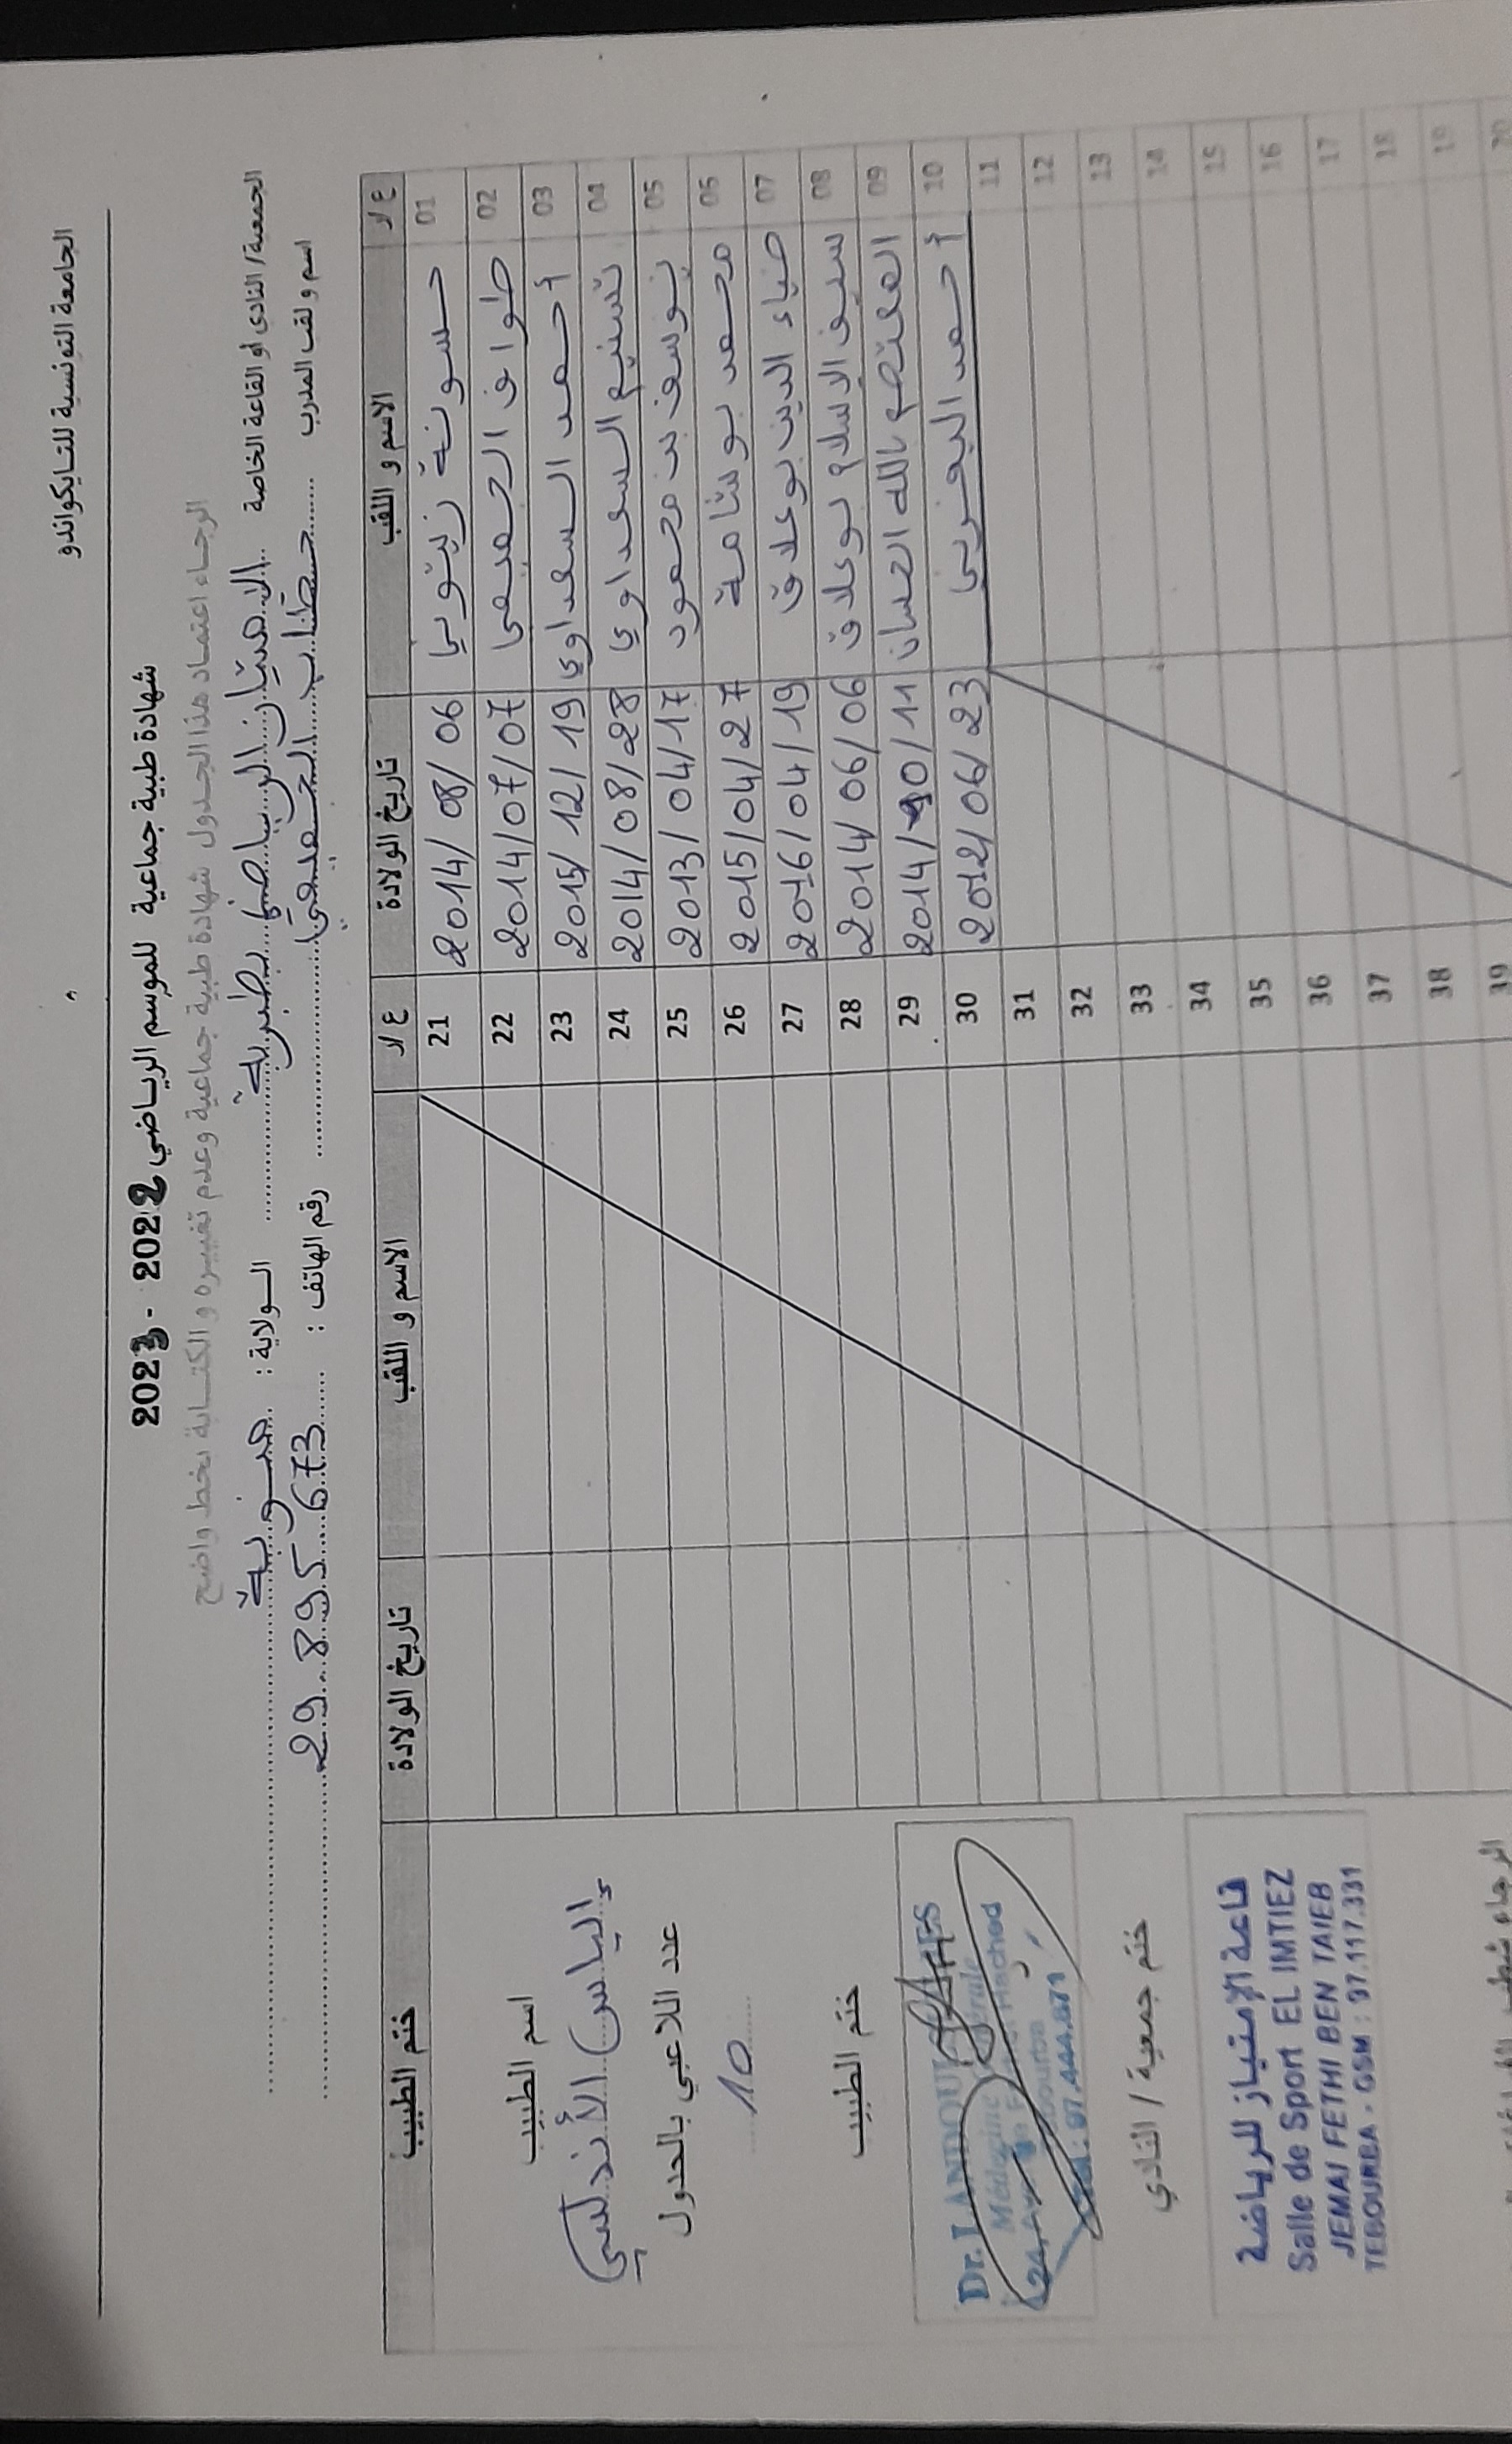 الجامعة التونسية للتايكواندو
شهادة طبية جماعية للموسم الرياضي 2022 - 2023
الرجاء اعتماد هذا الجدول شهادة طبية جماعية وعدم تغييره و الكتابة بخط واضح
الجمعية/ النادي أو القاعة الخاصة الامتياز الرياضي بطبربة الولاية : منوبة
اسم و لقب المدرب رقم الهاتف : 29 895 673
ع ار الاسم و اللقب تاريخ الولادة ع ار الاسم و اللقب تاريخ الولادة ختم الطبيب
01 حسونة زيتوني 2014/08/06 21
02 طواف الجميعي 2014/07/07 22
03 أحمد السعداوي 2015/12/19 23
04 تسنيم السعداوي 2014/08/28 24
05 يوسف بن محمود 2013/04/17 25
06 محمد بوشامة 2015/04/27 26
07 ضياء الدين بوعلاق 2016/04/19 27
08 سيف الاسلام بوعلاق 2014/06/06 28
09 المعتصم بالله الحسان 2014/10/11 29
10 أحمد 2012/06/23 30
11 31
12 32
13 33
14 34
15 35
16 36
17 37
18 38
19 39
20
اسم الطبيب
إلياس الأندلسي
عدد اللاعبي بالجدول
10
ختم الطبيب
Dr. LANDOULSI
Médecine Générale
Hached
Tebourba
Tel : 97.444.871
ختم جمعية / النادي
قاعة الإمتياز للرياضة
Salle de Sport EL IMTIEZ
JEMAI FETHI BEN TAIEB
TEBOURBA - GSM : 97.117.331
الرجاء شطب